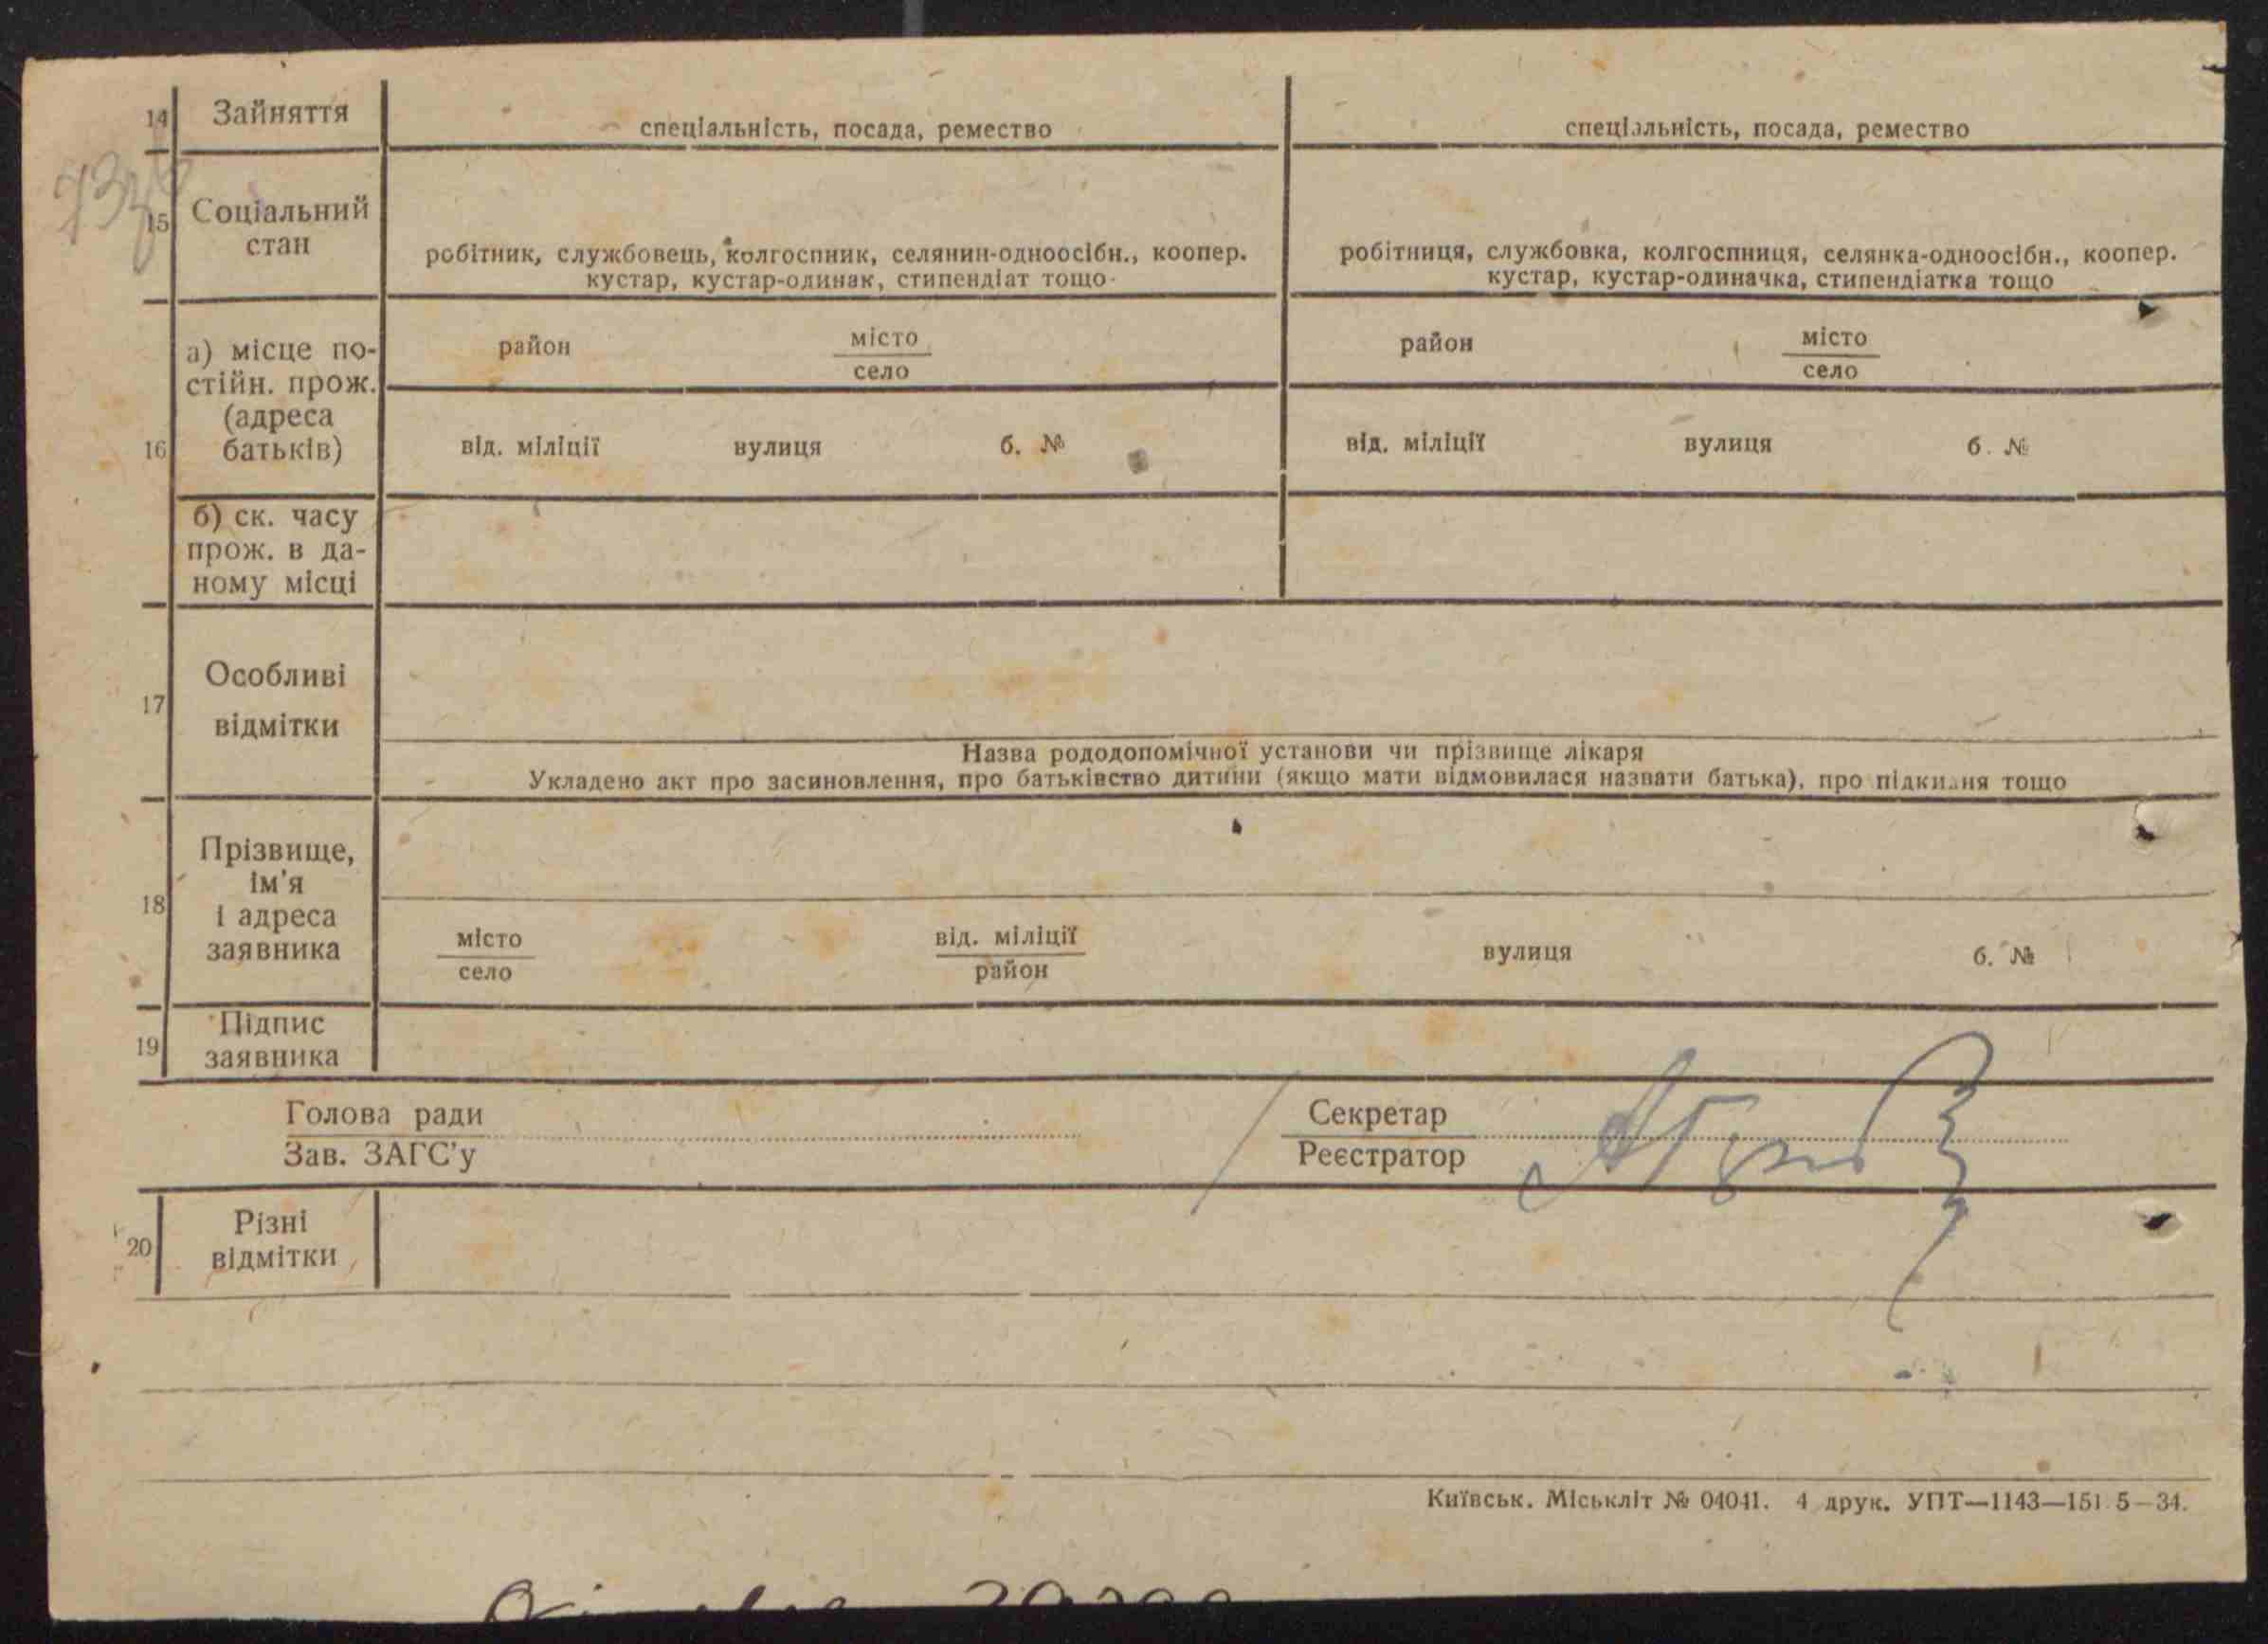 14 Зайняття
спеціальність, посада, ремество
спеціальність, посада, ремество
15 Соціальний
стан
робітник, службовець, колгоспник, селянин-одноосібн., коопер.
кустар, кустар-одинак, стипендіат тощо
робітниця, службовка, колгоспниця, селянка-одноосібн., коопер.
кустар, кустар-одиначка, стипендіатка тощо
16
а) місце по-
стійн. прож.
(адреса
батьків)
район
місто
село
район
місто
село
від. міліції вулиця б. №
від. міліції вулиця б. №
б) ск. часу
прож. в да-
ному місці
17 Особливі
відмітки
Назва рододопомічної установи чи прізвище лікаря
Укладено акт про засиновлення, про батьківство дитини (якщо мати відмовилася назвати батька), про підкидня тощо
18 Прізвище,
ім'я
і адреса
заявника
місто
село
від. міліції
район
вулиця
б. №
19 Підпис
заявника
Голова ради
Зав. ЗАГС'у
Секретар
Реєстратор
20 Різні
відмітки
Київськ. Міськліт № 04041. 4 друк. УПТ—1143—151 5—34.